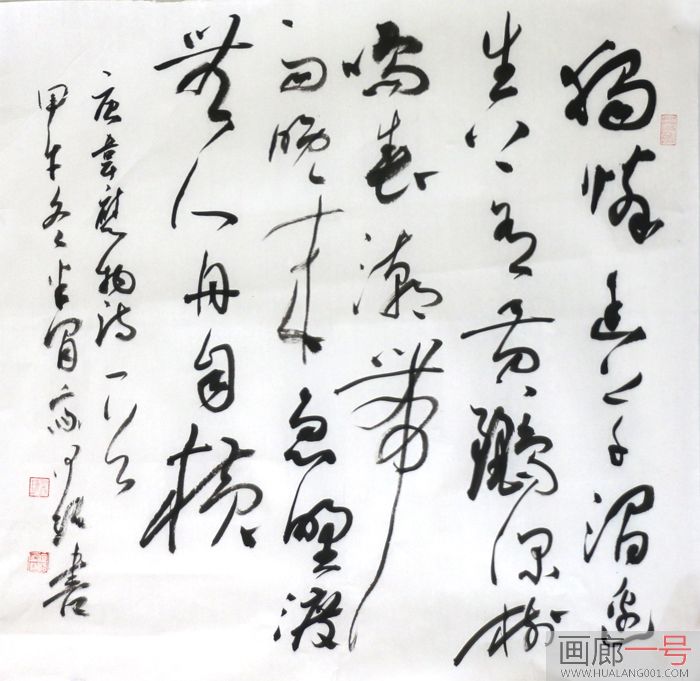 獨憐幽草澗邊
生上有黃鸝深樹
鳴春潮帶
雨晚來急野渡
無人舟自橫
唐韋應物詩一首
甲午冬書
画廊一号
WWW.HUALANG001.COM